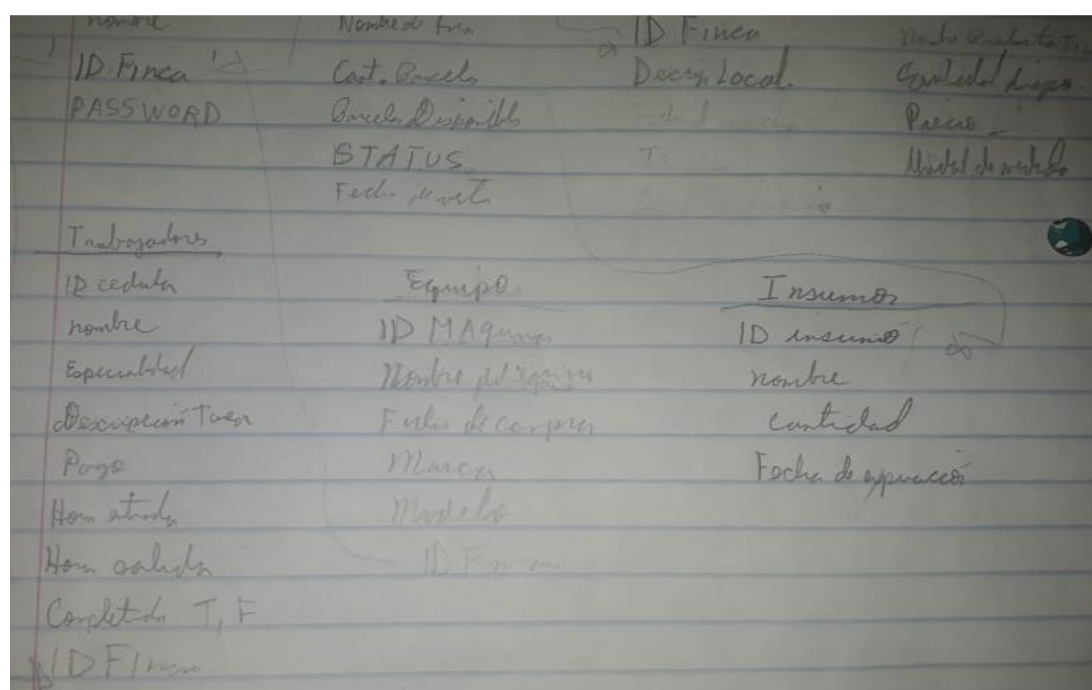 nombre
ID Finca
PASSWORD
Cant. Parcela
Parcela Disponible
STATUS
Fecha de
ID Finca
Descrip. Local.
Cantidad dispo.
Precio
Unidad de medida
Trabajadores
ID cedula
nombre
Especialidad
Descripción Tarea
Pago
Hora entrada
Hora salida
Completada T, F
ID Finca
Equipo
ID MAquina
Nombre del equipo
Fecha de compra
Marca
Modelo
ID Finca
Insumos
ID insumo
nombre
cantidad
Fecha de expiración